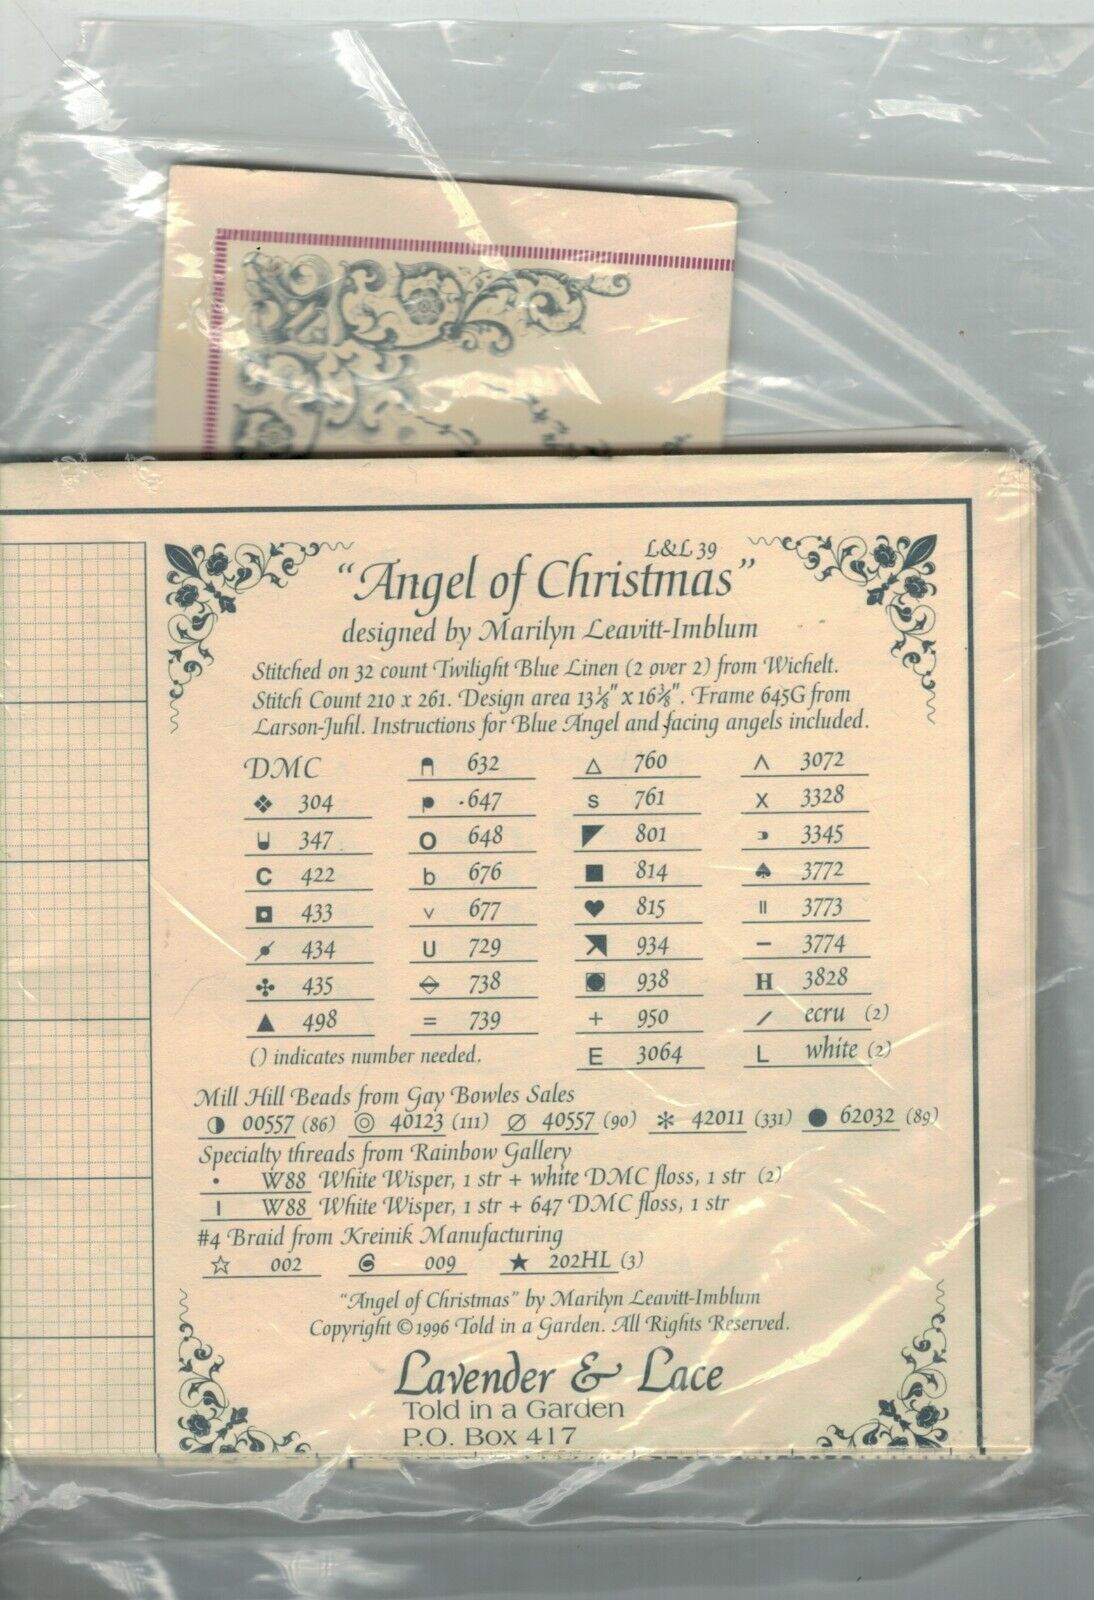 L&L 39
"Angel of Christmas"
designed by Marilyn Leavitt-Imblum
Stitched on 32 count Twilight Blue Linen (2 over 2) from Wichelt.
Stitch Count 210 x 261. Design area 13⅛" x 16⅜". Frame 645G from
Larson-Juhl. Instructions for Blue Angel and facing angels included.
DMC 632 △ 760 ∧ 3072
❖ 304 647 s 761 x 3328
347 O 648 ◤ 801 3345
C 422 b 676 ■ 814 ♠ 3772
◘ 433 v 677 ♥ 815 || 3773
434 U 729 934 – 3774
✣ 435 738 938 H 3828
▲ 498 = 739 + 950 / ecru (2)
() indicates number needed. E 3064 L white (2)
Mill Hill Beads from Gay Bowles Sales
◑ 00557 (86) ◎ 40123 (111) ∅ 40557 (90) * 42011 (331) ● 62032 (89)
Specialty threads from Rainbow Gallery
• W88 White Wisper, 1 str + white DMC floss, 1 str (2)
| W88 White Wisper, 1 str + 647 DMC floss, 1 str
#4 Braid from Kreinik Manufacturing
☆ 002 009 ★ 202HL (3)
"Angel of Christmas" by Marilyn Leavitt-Imblum
Copyright © 1996 Told in a Garden. All Rights Reserved.
Lavender & Lace
Told in a Garden
P.O. Box 417